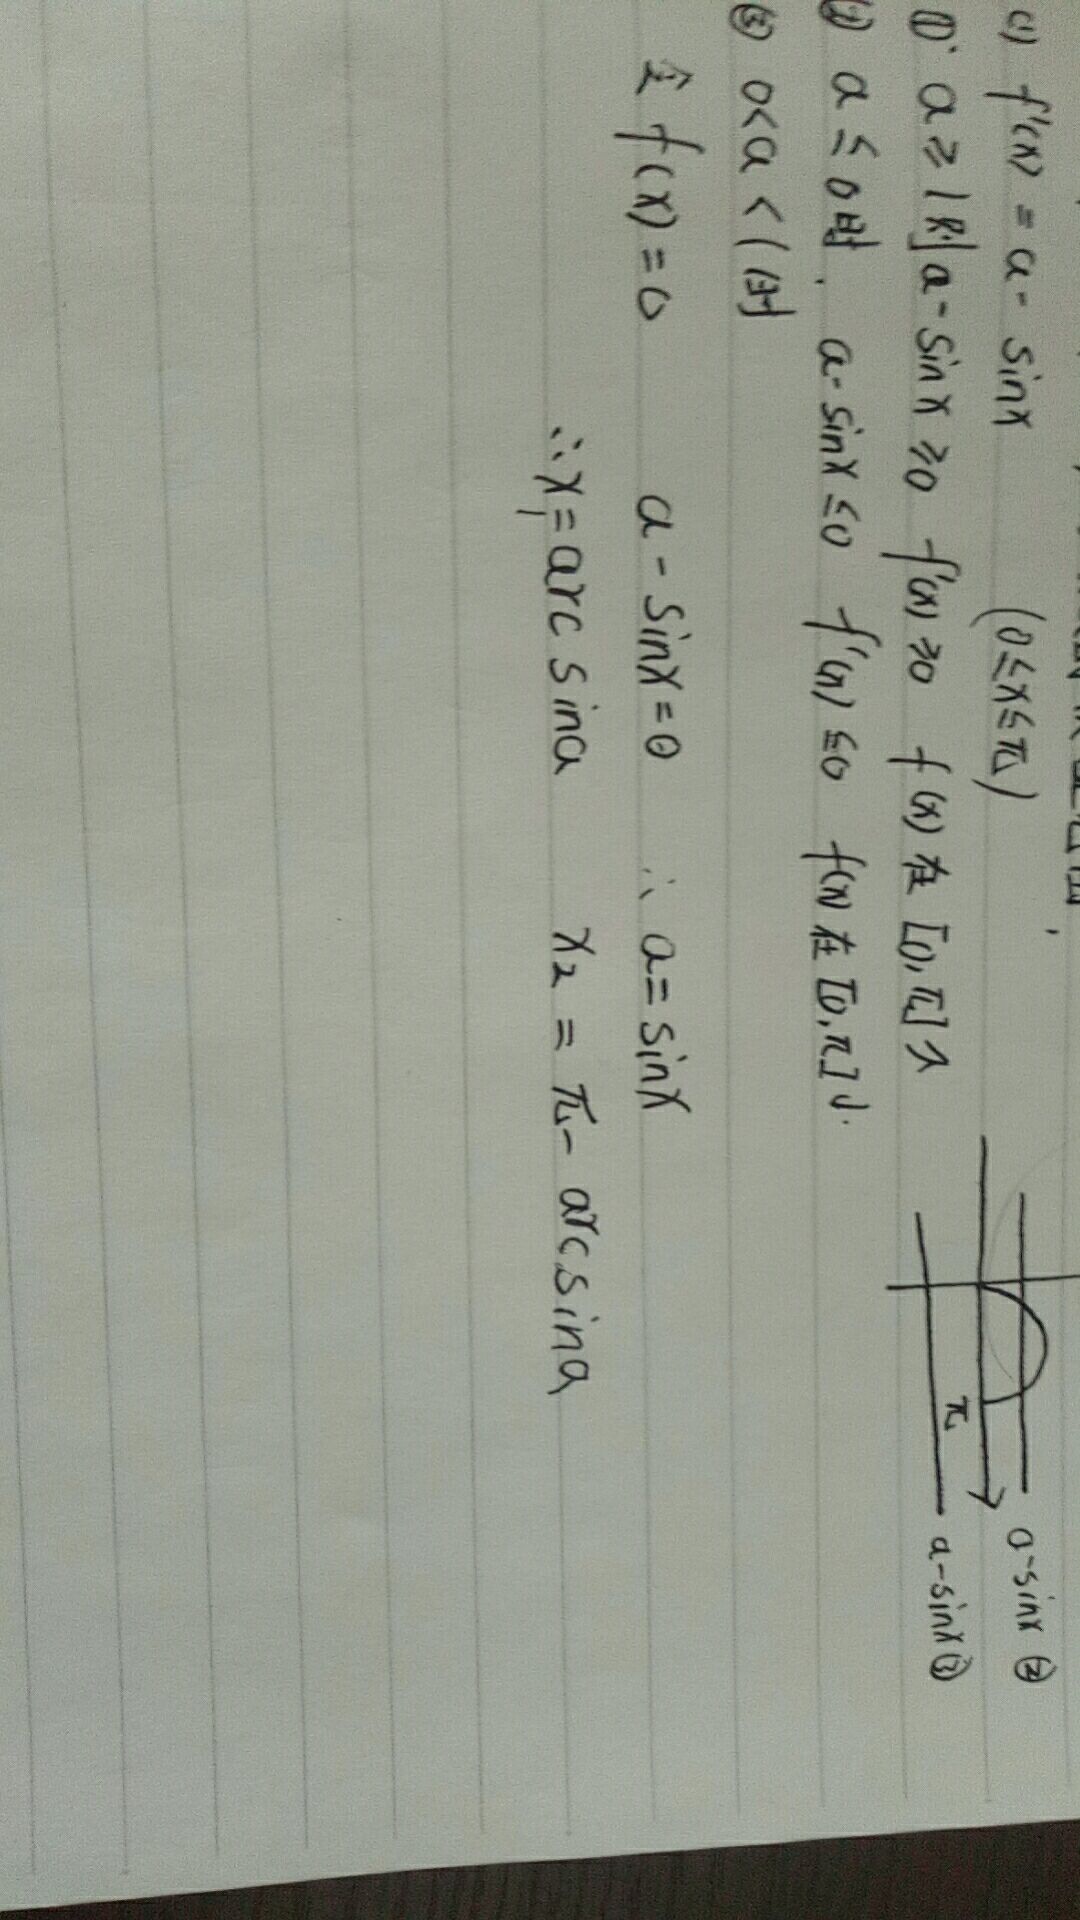 (1) f'(x) = a - sinx (0≤x≤π)
①. a ≥ 1 则 a - sinx ≥0 f'(x) ≥0 f(x) 在 [0, π] ↗
② a ≤ 0时. a - sinx ≤0 f'(x) ≤0 f(x) 在 [0, π] ↓.
③ 0<a<1时
令 f(x) = 0 a - sinx = 0 ∴ a = sinx
∴ x₁ = arc sina x₂ = π - arcsina
π
a-sinx ②
a-sinx ③